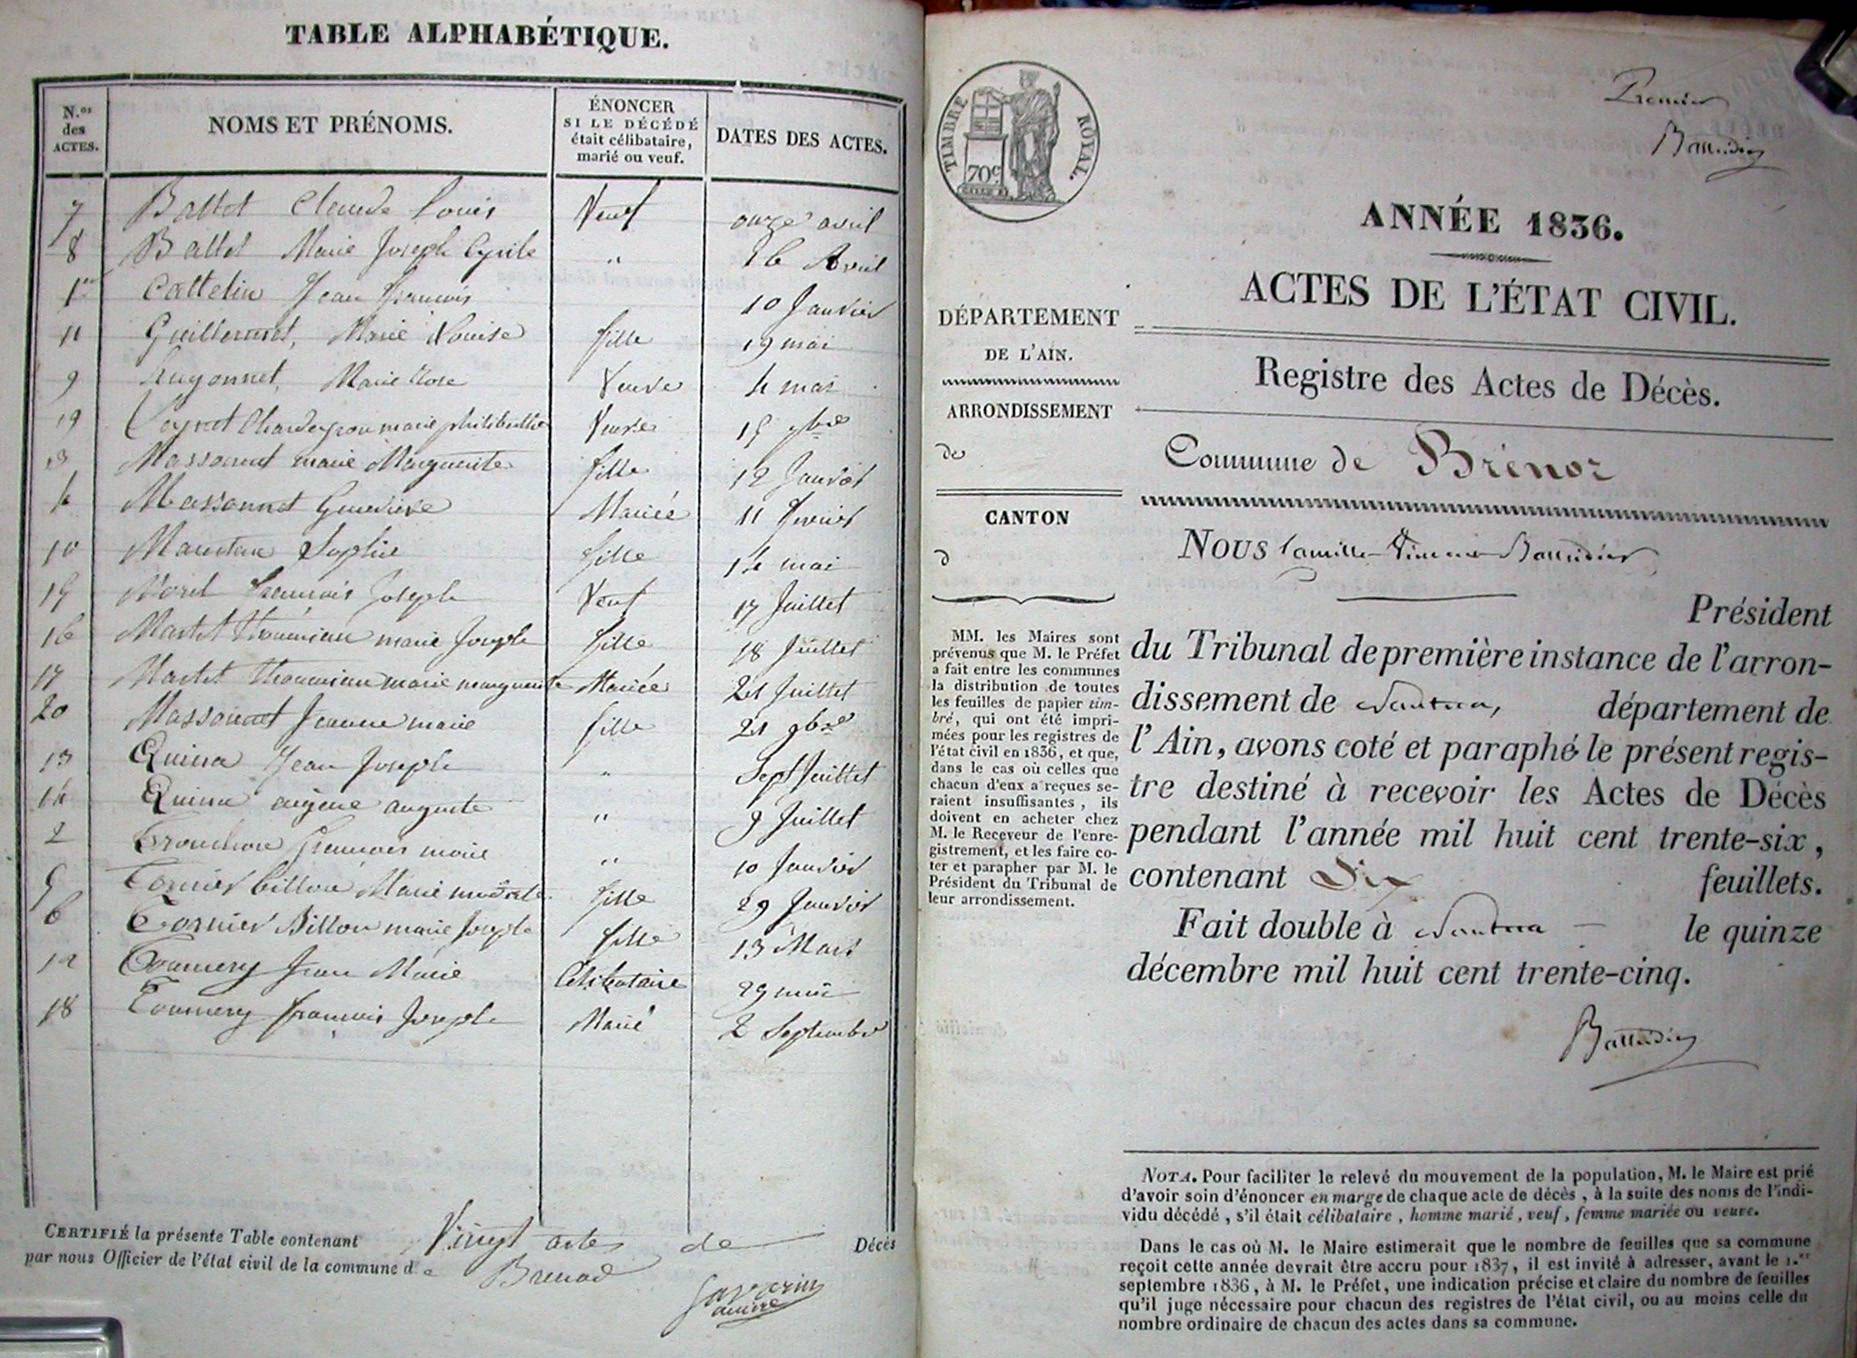 TABLE ALPHABÉTIQUE.
N.os des ACTES.
NOMS ET PRÉNOMS.
ÉNONCER
SI LE DÉCÉDÉ
était célibataire,
marié ou veuf.
DATES DES ACTES.
7 Ballet Claude Louis Veuf onze avril
8 Ballet Marie Joseph Cyrile " 26 Avril
1er Cattelin Jean François 10 Janvier
11 Guillermet, Marie Louise fille 19 mai
9 Marie Rose Veuve 4 mai
19 marie philiberthe Veuve 15 9bre
Massonnet marie Marguerite fille 12 Janvier
4 Massonnet Geneviève Mariée 11 fevrier
10 Sophie fille 14 mai
15 Morel francois Joseph Veuf 17 Juillet
16 Martet marie Joseph fille 18 Juillet
17 Martet marie marguerite Mariée 21 Juillet
20 Massonnet Jeanne marie fille 21 9bre
13 Quinra Jean Joseph " Sept Juillet
14 auguste " 9 Juillet
2 marie " 10 Janvier
5 Tornier billon Marie fille 29 Janvier
6 Tornier Billon marie Joseph fille 13 Mars
12 Tournery Jean Marie Célibataire 29 mai
18 Tournery francois Joseph Marié 2 Septembre
CERTIFIÉ la présente Table contenant Vingt actes de Décès
par nous Officier de l'état civil de la commune de Brenod
Savarin
maire
TIMBRE ROYAL.
70c.
Premier
Battudier
ANNÉE 1836.
ACTES DE L'ÉTAT CIVIL.
Registre des Actes de Décès.
Commune de Brénoz
DÉPARTEMENT
DE L'AIN.
ARRONDISSEMENT
de
CANTON
d
MM. les Maires sont
prévenus que M. le Préfet
a fait entre les communes
la distribution de toutes
les feuilles de papier tim-
bré, qui ont été impri-
mées pour les registres de
l'état civil en 1836, et que,
dans le cas où celles que
chacun d'eux a reçues se-
raient insuffisantes, ils
doivent en acheter chez
M. le Receveur de l'enre-
gistrement, et les faire co-
ter et parapher par M. le
Président du Tribunal de
leur arrondissement.
NOUS Camille Battudier
Président
du Tribunal de première instance de l'arron-
dissement de Nantua, département de
l'Ain, avons coté et paraphé le présent regis-
tre destiné à recevoir les Actes de Décès
pendant l'année mil huit cent trente-six,
contenant Six feuillets.
Fait double à Nantua le quinze
décembre mil huit cent trente-cinq.
Battudier
NOTA. Pour faciliter le relevé du mouvement de la population, M. le Maire est prié
d'avoir soin d'énoncer en marge de chaque acte de décès, à la suite des noms de l'indi-
vidu décédé, s'il était célibataire, homme marié, veuf, femme mariée ou veuve.
Dans le cas où M. le Maire estimerait que le nombre de feuilles que sa commune
reçoit cette année devrait être accru pour 1837, il est invité à adresser, avant le 1.er
septembre 1836, à M. le Préfet, une indication précise et claire du nombre de feuilles
qu'il juge nécessaire pour chacun des registres de l'état civil, ou au moins celle du
nombre ordinaire de chacun des actes dans sa commune.